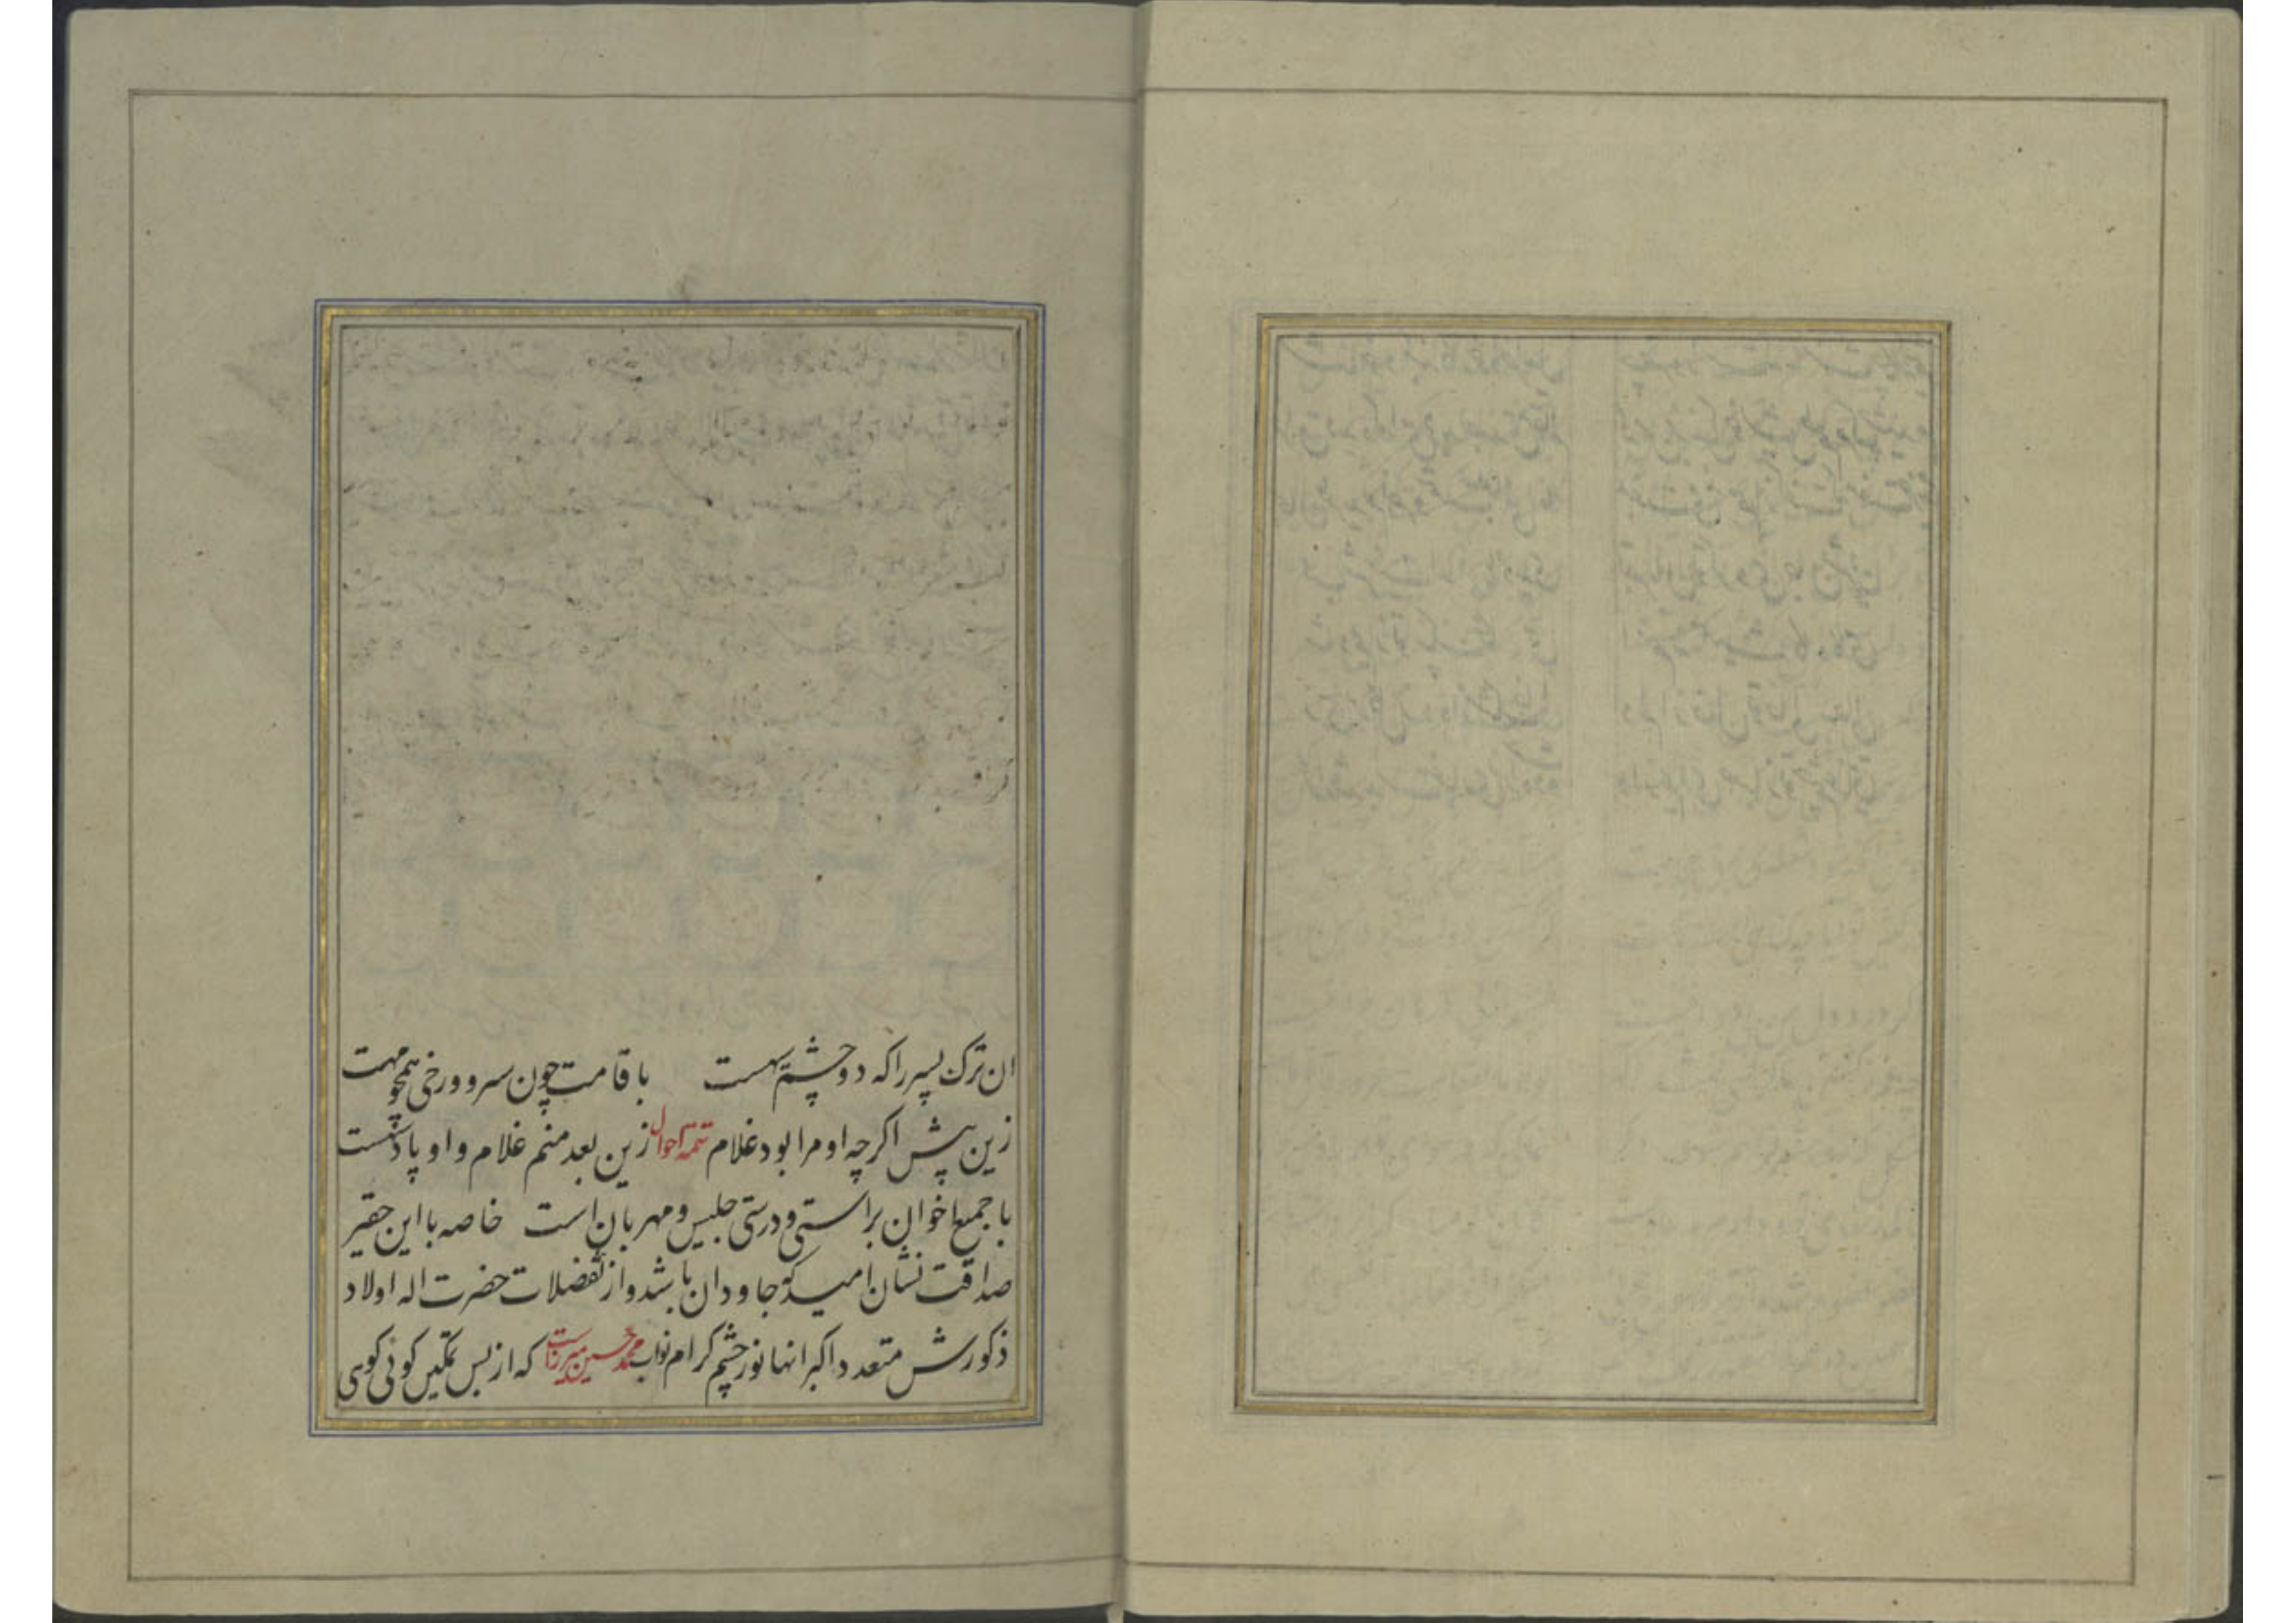 ان ترک پسر را که دو چشم سیهست با قامت چون سرو و رخی همچو مهست
زین پیش اگرچه او مرا بود غلام تتمه احوال زین بعد منم غلام و او پادشهست
با جمیع اخوان براستی و درستی جلیس و مهربان است خاصه با این حقیر
صداقت نشان امید که جاودان باشد و از تفضلات حضرت اله اولاد
ذکورش متعدد و اکبر انها نور چشم کرام نواب محمد حسین میرزاست که از بس تمکین کوئی کوی